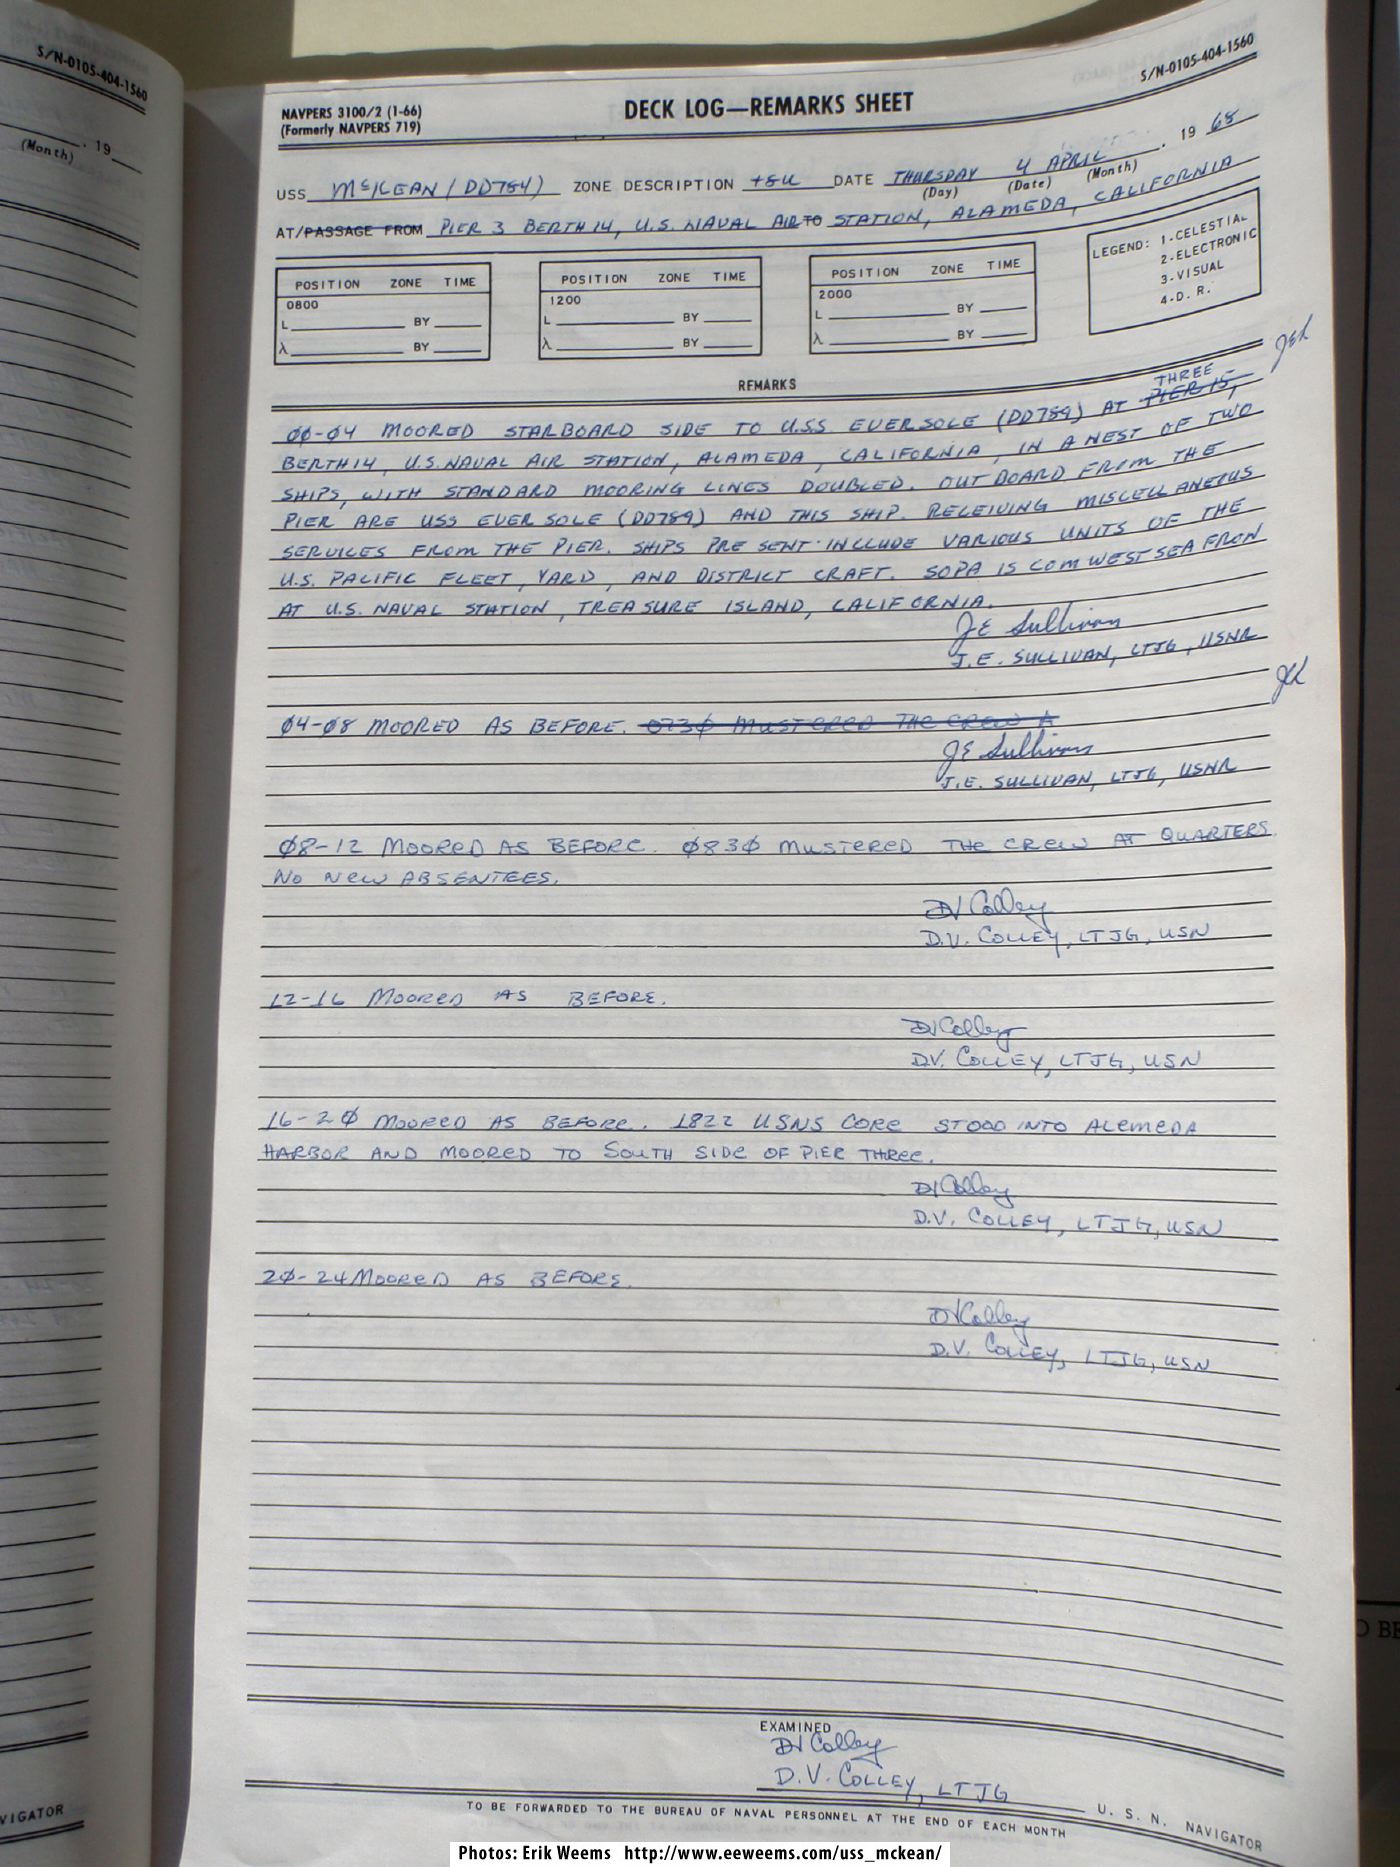 S/N-0105-404-1560
(Month)
, 19
VIGATOR
NAVPERS 3100/2 (1-66)
(Formerly NAVPERS 719)
DECK LOG—REMARKS SHEET
S/N-0105-404-1560
USS McKEAN (DD784) ZONE DESCRIPTION +8U DATE THURSDAY 4 APRIL, 19 68
(Day) (Date) (Month)
AT/PASSAGE FROM PIER 3 BERTH 14, U.S. NAVAL AIR TO STATION, ALAMEDA, CALIFORNIA
POSITION ZONE TIME
0800
L BY
λ BY
POSITION ZONE TIME
1200
L BY
λ BY
POSITION ZONE TIME
2000
L BY
λ BY
LEGEND: 1-CELESTIAL
2-ELECTRONIC
3-VISUAL
4-D. R.
REMARKS
THREE
00-04 MOORED STARBOARD SIDE TO U.S.S. EVERSOLE (DD789) AT PIER 15,
BERTH 14, U.S. NAVAL AIR STATION, ALAMEDA, CALIFORNIA, IN A NEST OF TWO
SHIPS, WITH STANDARD MOORING LINES DOUBLED. OUTBOARD FROM THE
PIER ARE USS EVERSOLE (DD789) AND THIS SHIP. RECEIVING MISCELLANEOUS
SERVICES FROM THE PIER. SHIPS PRESENT INCLUDE VARIOUS UNITS OF THE
U.S. PACIFIC FLEET, YARD, AND DISTRICT CRAFT. SOPA IS COMWESTSEAFRON
AT U.S. NAVAL STATION, TREASURE ISLAND, CALIFORNIA.
JE Sullivan
J.E. SULLIVAN, LTJG, USNR
04-08 MOORED AS BEFORE. 0730 MUSTERED THE CREW A
JE Sullivan
J.E. SULLIVAN, LTJG, USNR
08-12 MOORED AS BEFORE. 0830 MUSTERED THE CREW AT QUARTERS.
NO NEW ABSENTEES.
DV Colley
D.V. COLLEY, LTJG, USN
12-16 MOORED AS BEFORE.
DV Colley
D.V. COLLEY, LTJG, USN
16-20 MOORED AS BEFORE. 1822 USNS CORE STOOD INTO ALEMEDA
HARBOR AND MOORED TO SOUTH SIDE OF PIER THREE.
DV Colley
D.V. COLLEY, LTJG, USN
20-24 MOORED AS BEFORE.
DV Colley
D.V. COLLEY, LTJG, USN
EXAMINED
DV Colley
D.V. COLLEY, LTJG
U. S. N. NAVIGATOR
TO BE FORWARDED TO THE BUREAU OF NAVAL PERSONNEL AT THE END OF EACH MONTH
Photos: Erik Weems http://www.eeweems.com/uss_mckean/